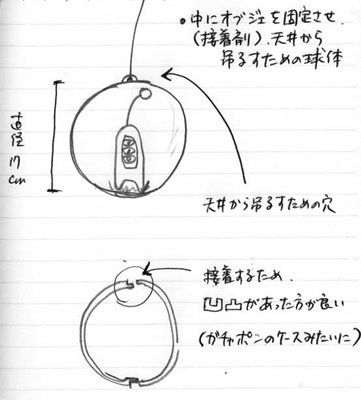 ・中にオブジェを固定させ
(接着剤)、天井から
吊るすための球体
直径17cm
天井から吊るすための穴
接着するため
凹凸があった方が良い
(ガチャポンのケースみたいに)